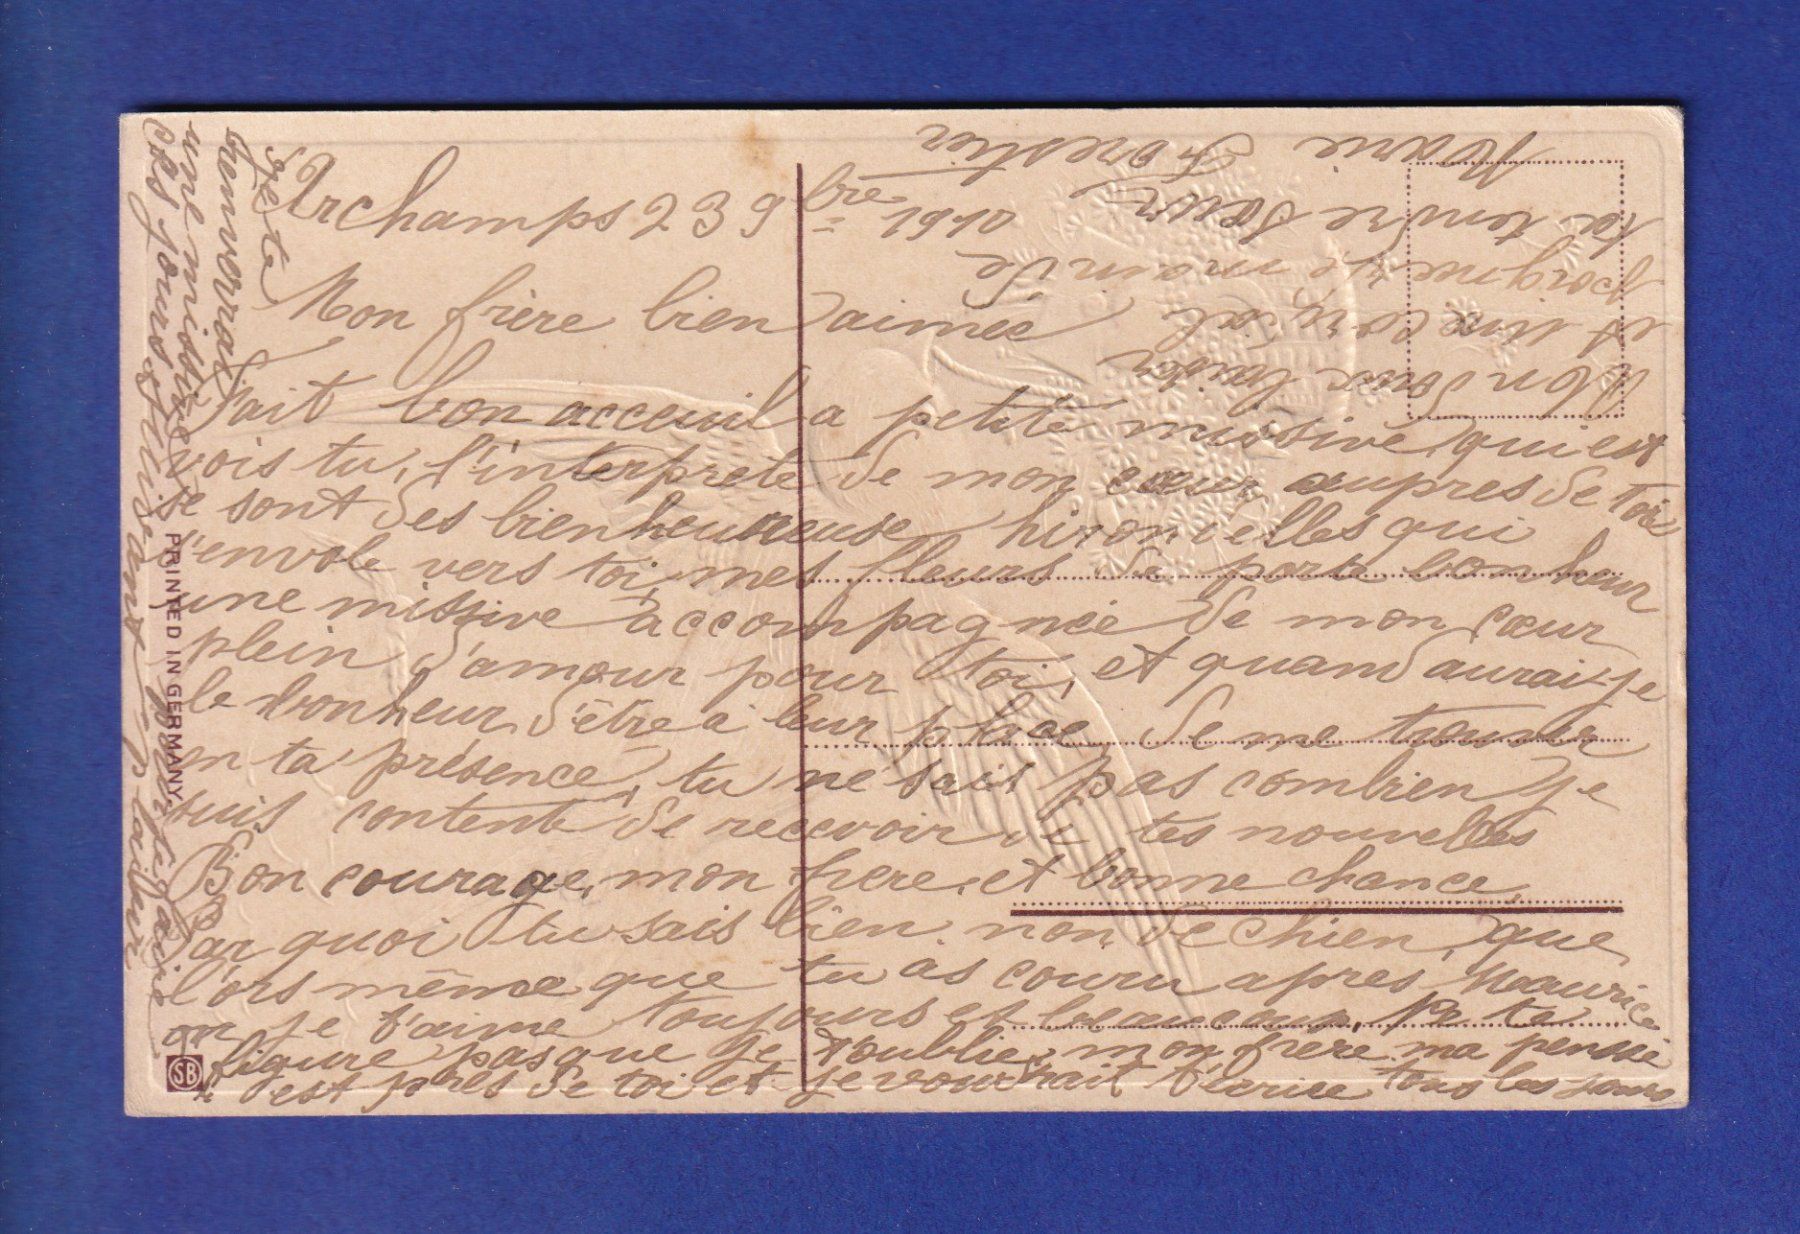 Archamps 23 9bre 1910
Mon frère bien aimée
Fait bon acceuil a petite missive qui est
vois tu, l'interprete de mon cœur aupres de toi
se sont des bienheureuse hirondelles qui
s'envole vers toi, mes fleurs de porte bonheur
une missive accompagnée de mon cœur
plein d'amour pour toi, et quand aurai-je
le bonheur d'être a leur place, de me trouver
en ta présence, tu ne sais pas combien je
suis contente de recevoir de tes nouvelles
Bon courage, mon frere, et bonne chance
Par quoi tu sais bien non de chien, que
l'ors même que tu as couru apres Maurice
je t'aime toujours et beaucoup, ne te
figure pas que je t'oublie, mon frère ma pensée
est pres de toi et je voudrait t'écrire tous les jours
je te
renverrai
une missive
ces jours
Mon doux baiser
et une
poignée de main de
ta tendre Sœur
Marie Forestier
PRINTED IN GERMANY
SB